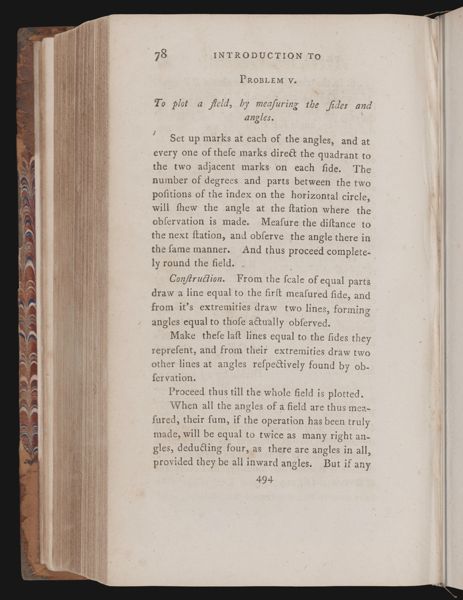 78 INTRODUCTION TO
PROBLEM V.
To plot a field, by meaſuring the ſides and
angles.
Set up marks at each of the angles, and at
every one of theſe marks direct the quadrant to
the two adjacent marks on each ſide. The
number of degrees and parts between the two
poſitions of the index on the horizontal circle,
will ſhew the angle at the ſtation where the
obſervation is made. Meaſure the diſtance to
the next ſtation, and obſerve the angle there in
the ſame manner. And thus proceed complete-
ly round the field.
Conſtruction. From the ſcale of equal parts
draw a line equal to the firſt meaſured ſide, and
from it's extremities draw two lines, forming
angles equal to thoſe actually obſerved.
Make theſe laſt lines equal to the ſides they
repreſent, and from their extremities draw two
other lines at angles reſpectively found by ob-
ſervation.
Proceed thus till the whole field is plotted.
When all the angles of a field are thus mea-
ſured, their ſum, if the operation has been truly
made, will be equal to twice as many right an-
gles, deducting four, as there are angles in all,
provided they be all inward angles. But if any
494